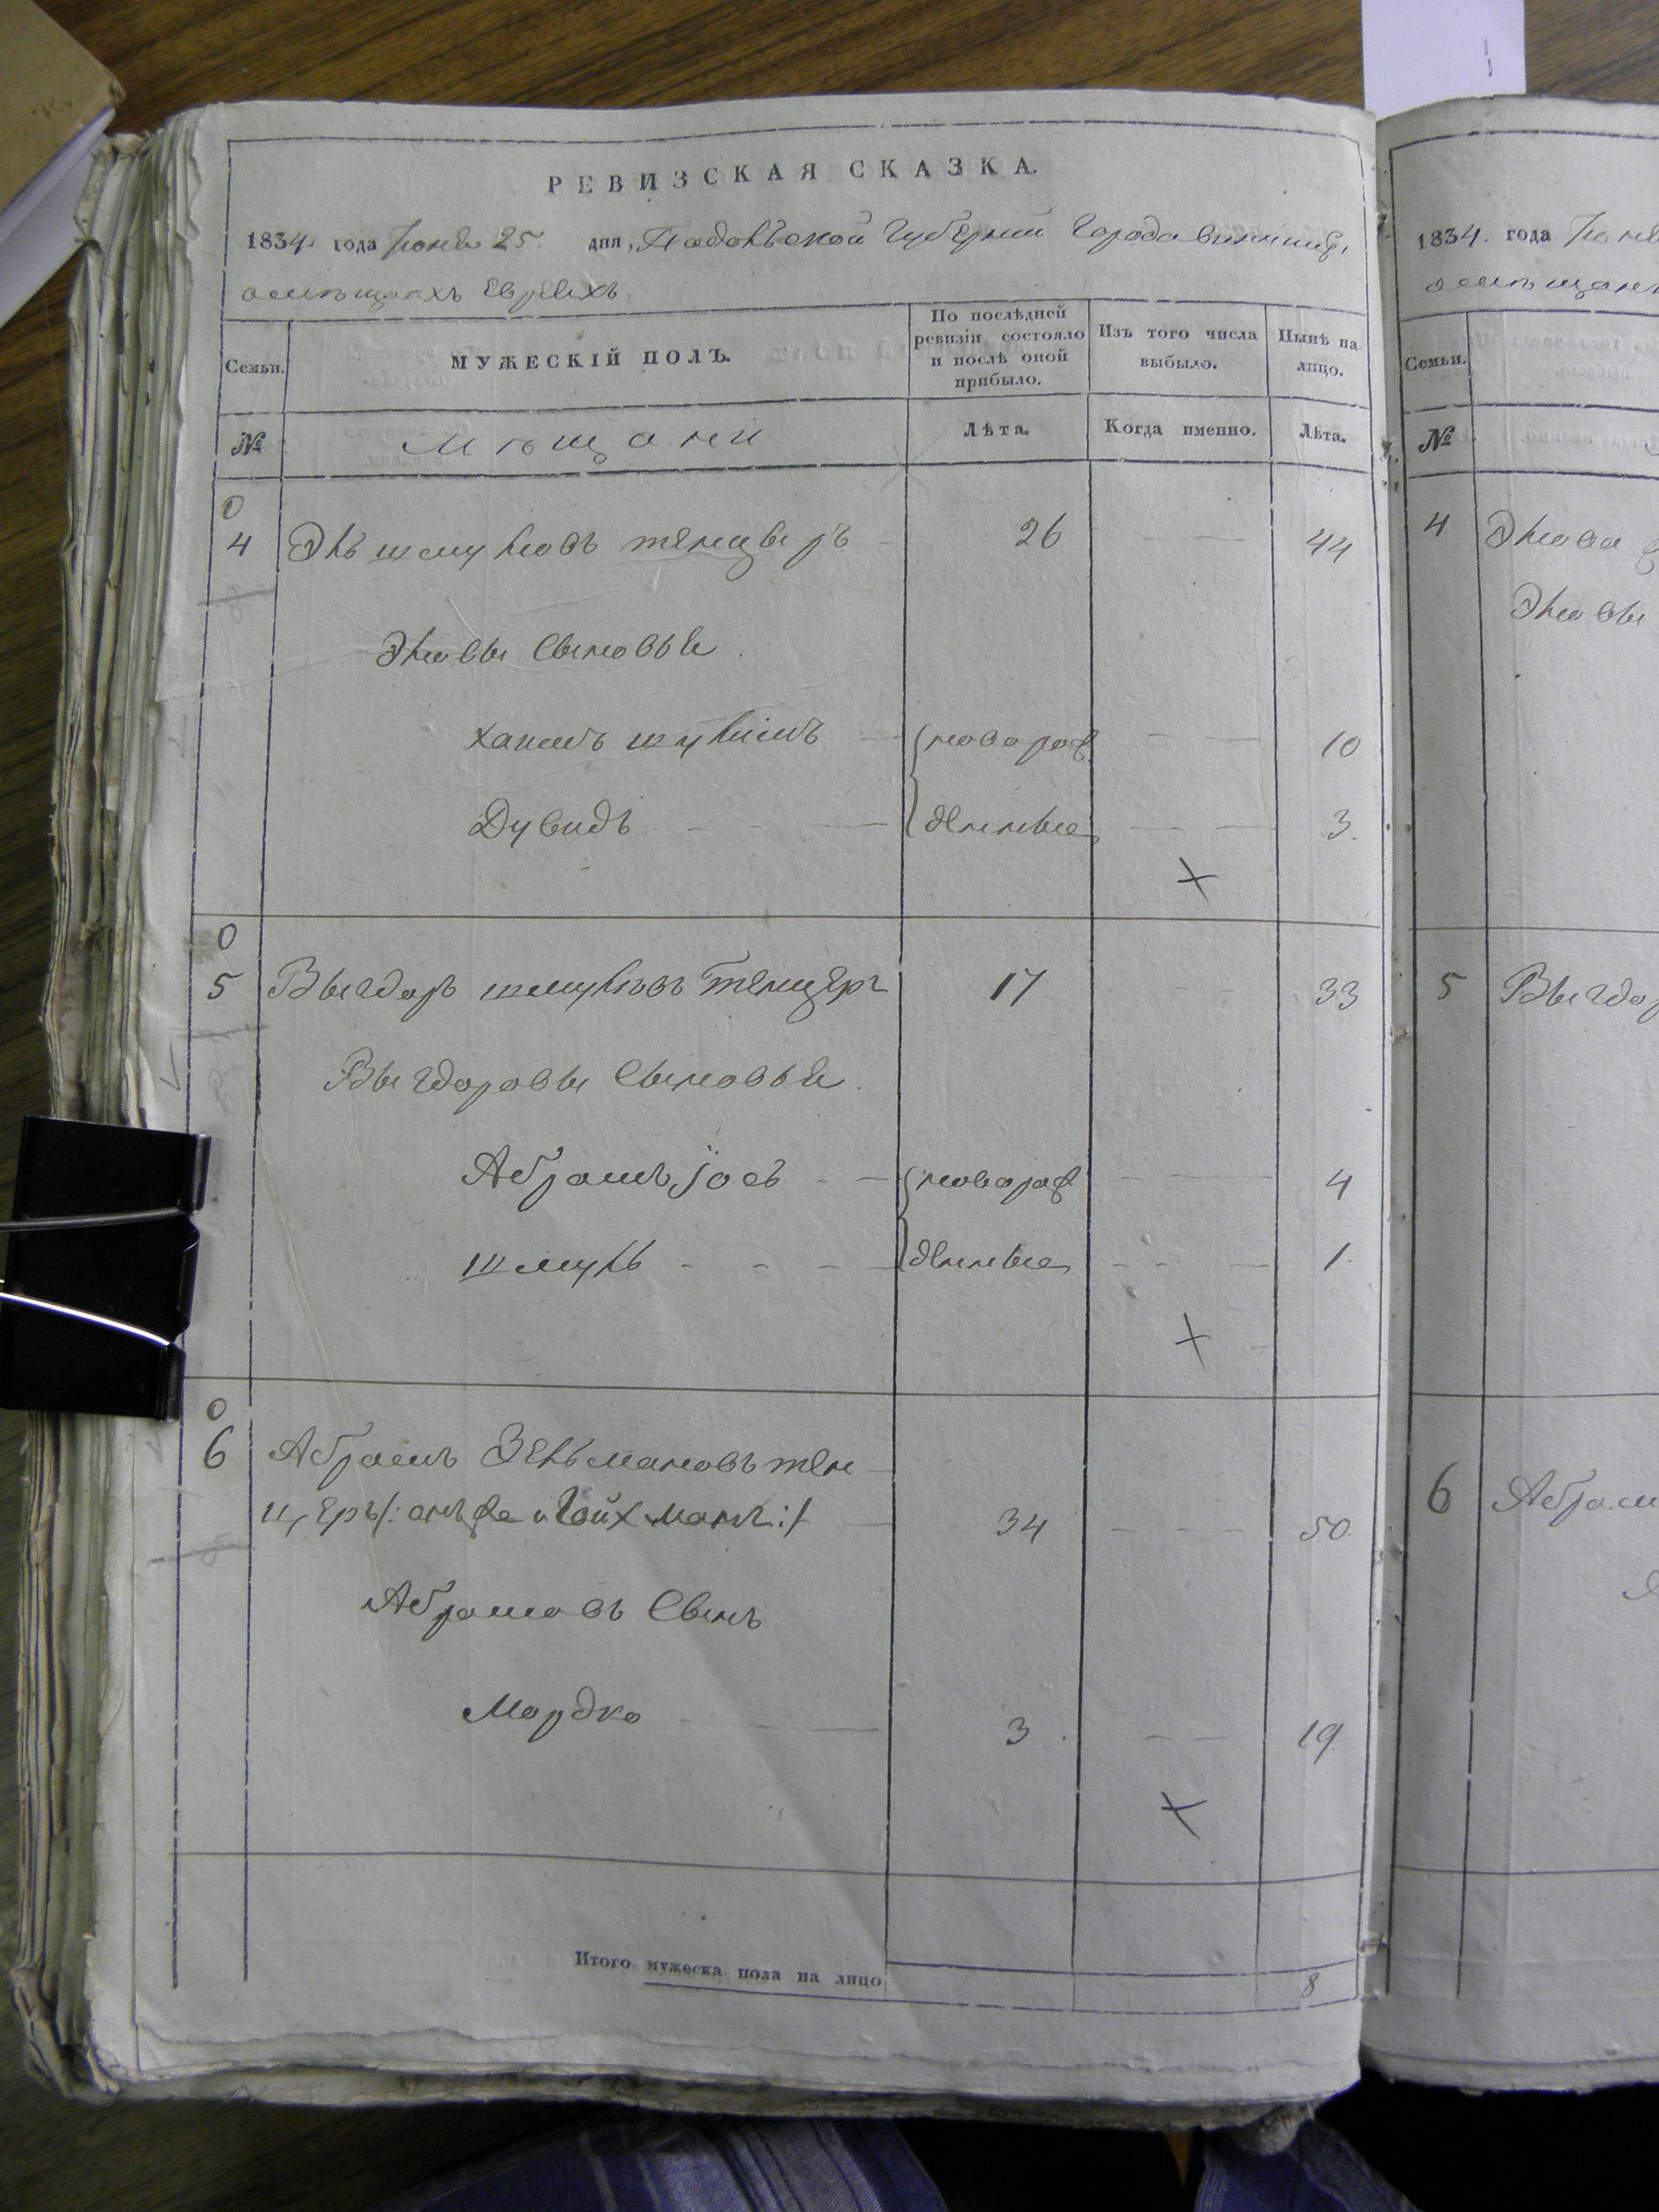 РЕВИЗСКАЯ СКАЗКА.
1834 года Іюня 25 дня, Падольской Губерніи Города Винницы,
омѣщанхъ Евреяхъ
Семьи.
МУЖЕСКІЙ ПОЛЪ.
По послѣдней ревизіи состояло и послѣ оной прибыло.
Изъ того числа выбыло.
Нынѣ на лицо.
№
Мѣщани
Лѣта.
Когда именно.
Лѣта.
0
4 Эль Шмулiовъ Тенцверъ 26 44
Эліовы Сыновья
Хаимъ Шулимъ новорож 10
Дувидъ денные 3
0
5 Выгдоръ Шмулёвъ Тенцеръ 17 33
Выгдоровы Сыновья
Абрамъ Іосъ новорож 4
Шмуль денные 1
0
6 Абрамъ Зельмановъ Тен
церъ /: онъже и Гойхманъ :/ 34 50
Абрамовъ Сынъ
Мордко 3 19
Итого мужеска пола на лицо 8
1834. года Іюня
Семьи.
№
4 Эліова
Эліовы
5 Выгдор
6 Абрам